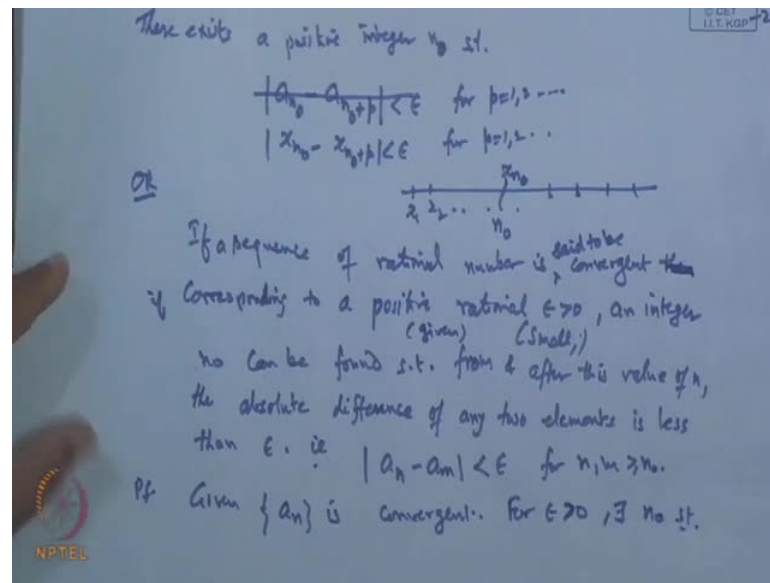 There exists a positive integer n₀ st.
© CET
I.I.T. KGP
|a_{n₀} - a_{n₀+p}| < ε for p=1,2 ----
|x_{n₀} - x_{n₀+p}| < ε for p=1,2 . .
OR
x_{n₀}
n₀
If a sequence of rational number is said to be convergent
if Corresponding to a positive rational ε>0, an integer
(given) (small,)
n₀ can be found s.t. from & after this value of n,
the absolute difference of any two elements is less
than ε. ie |a_n - a_m| < ε for n,m ≥ n₀.
Pf. Given {a_n} is convergent. For ε>0, ∃ n₀ st.
NPTEL